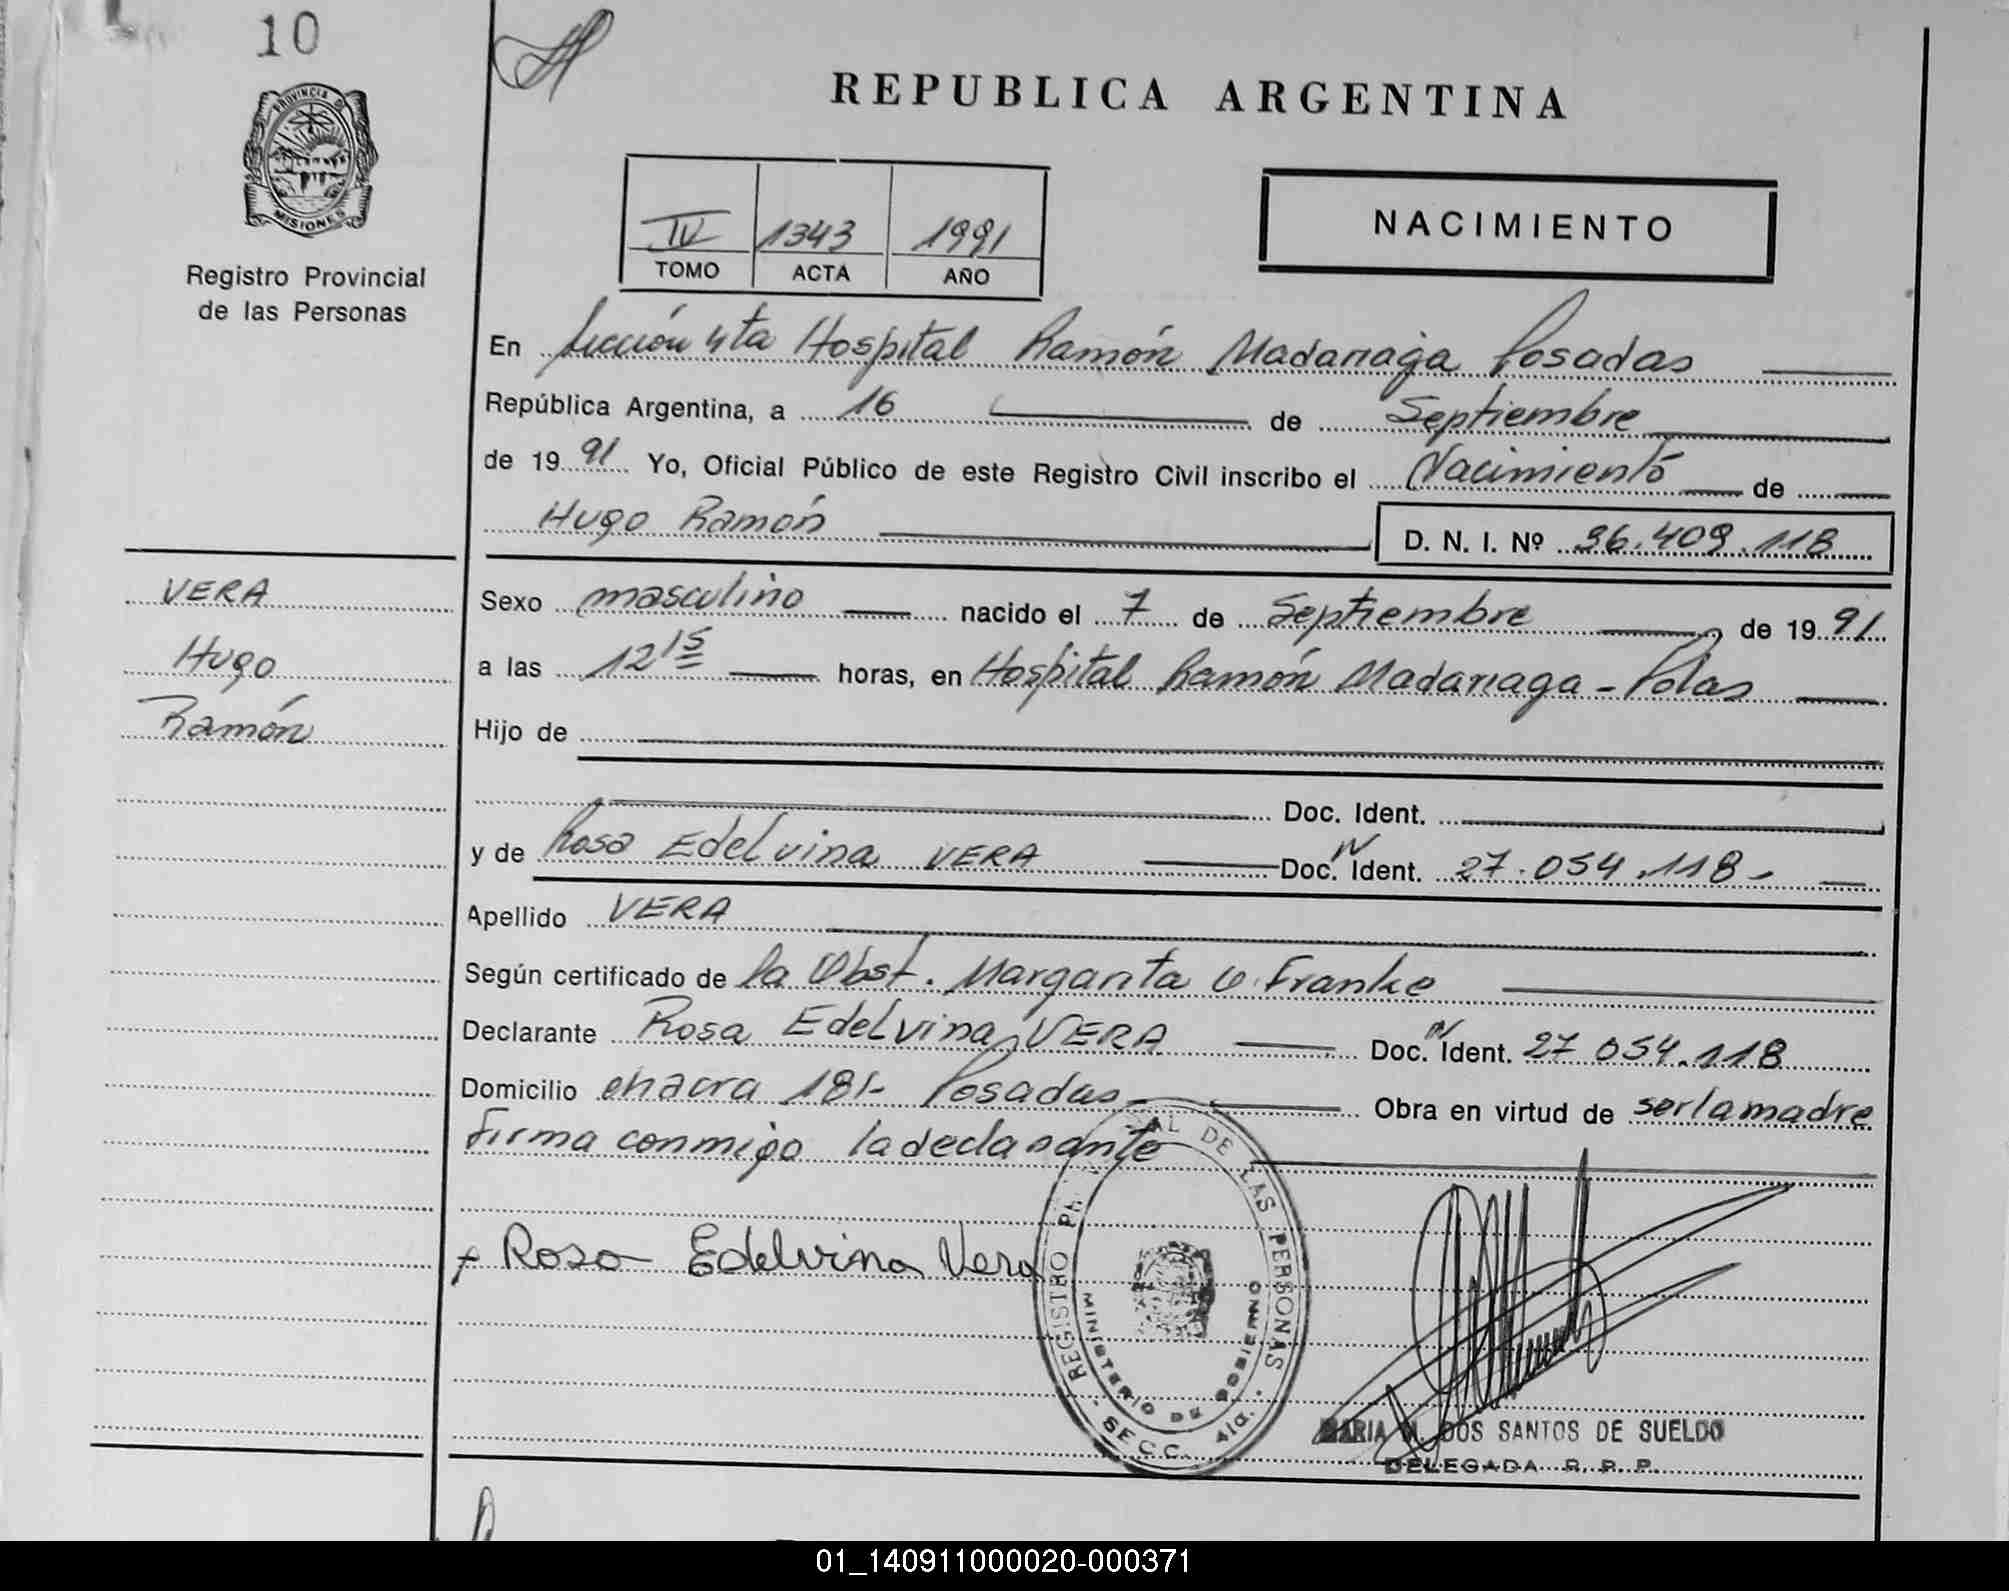 10
PROVINCIA DE
MISIONES
Registro Provincial
de las Personas
REPUBLICA ARGENTINA
IV 1343 1991
TOMO ACTA AÑO
NACIMIENTO
En Sección 4ta Hospital Ramón Madariaga Posadas
República Argentina, a 16 de Septiembre
de 1991 Yo, Oficial Público de este Registro Civil inscribo el Nacimiento de
Hugo Ramón D. N. I. Nº 36.409.118
VERA
Hugo
Ramón
Sexo masculino nacido el 7 de Septiembre de 1991
a las 12 15 horas, en Hospital Ramón Madariaga - Pdas
Hijo de
Doc. Ident.
y de Rosa Edelvina VERA Doc. N Ident. 27.054.118-
Apellido VERA
Según certificado de la Obst. Margarita Franke
Declarante Rosa Edelvina VERA Doc. N Ident. 27 054.118
Domicilio chacra 181- Posadas- Obra en virtud de ser la madre
firma conmigo la declarante
Rosa Edelvina Vera
REGISTRO AL DE LAS PERSONAS
MINISTERIO DE GOBIERNO
SECC. 4ta.
MARIA DOS SANTOS DE SUELDO
DELEGADA R. P. P.
01_140911000020-000371